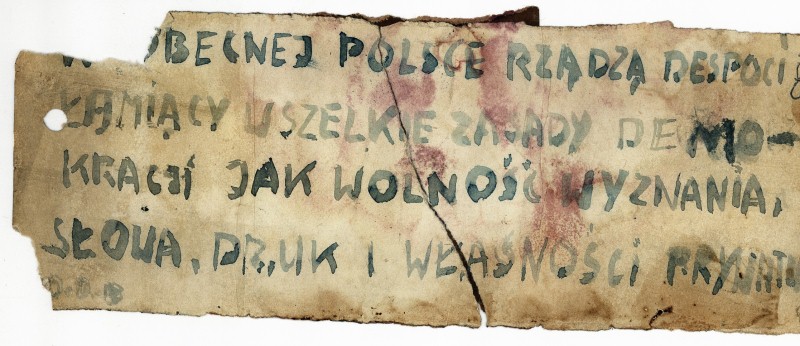 W OBECNEJ POLSCE RZĄDZĄ DESPOCI
ŁAMIĄCY WSZELKIE ZASADY DEMO-
KRACJI JAK WOLNOŚĆ WYZNANIA,
SŁOWA, DRUK I WŁASNOŚCI PRYWATN